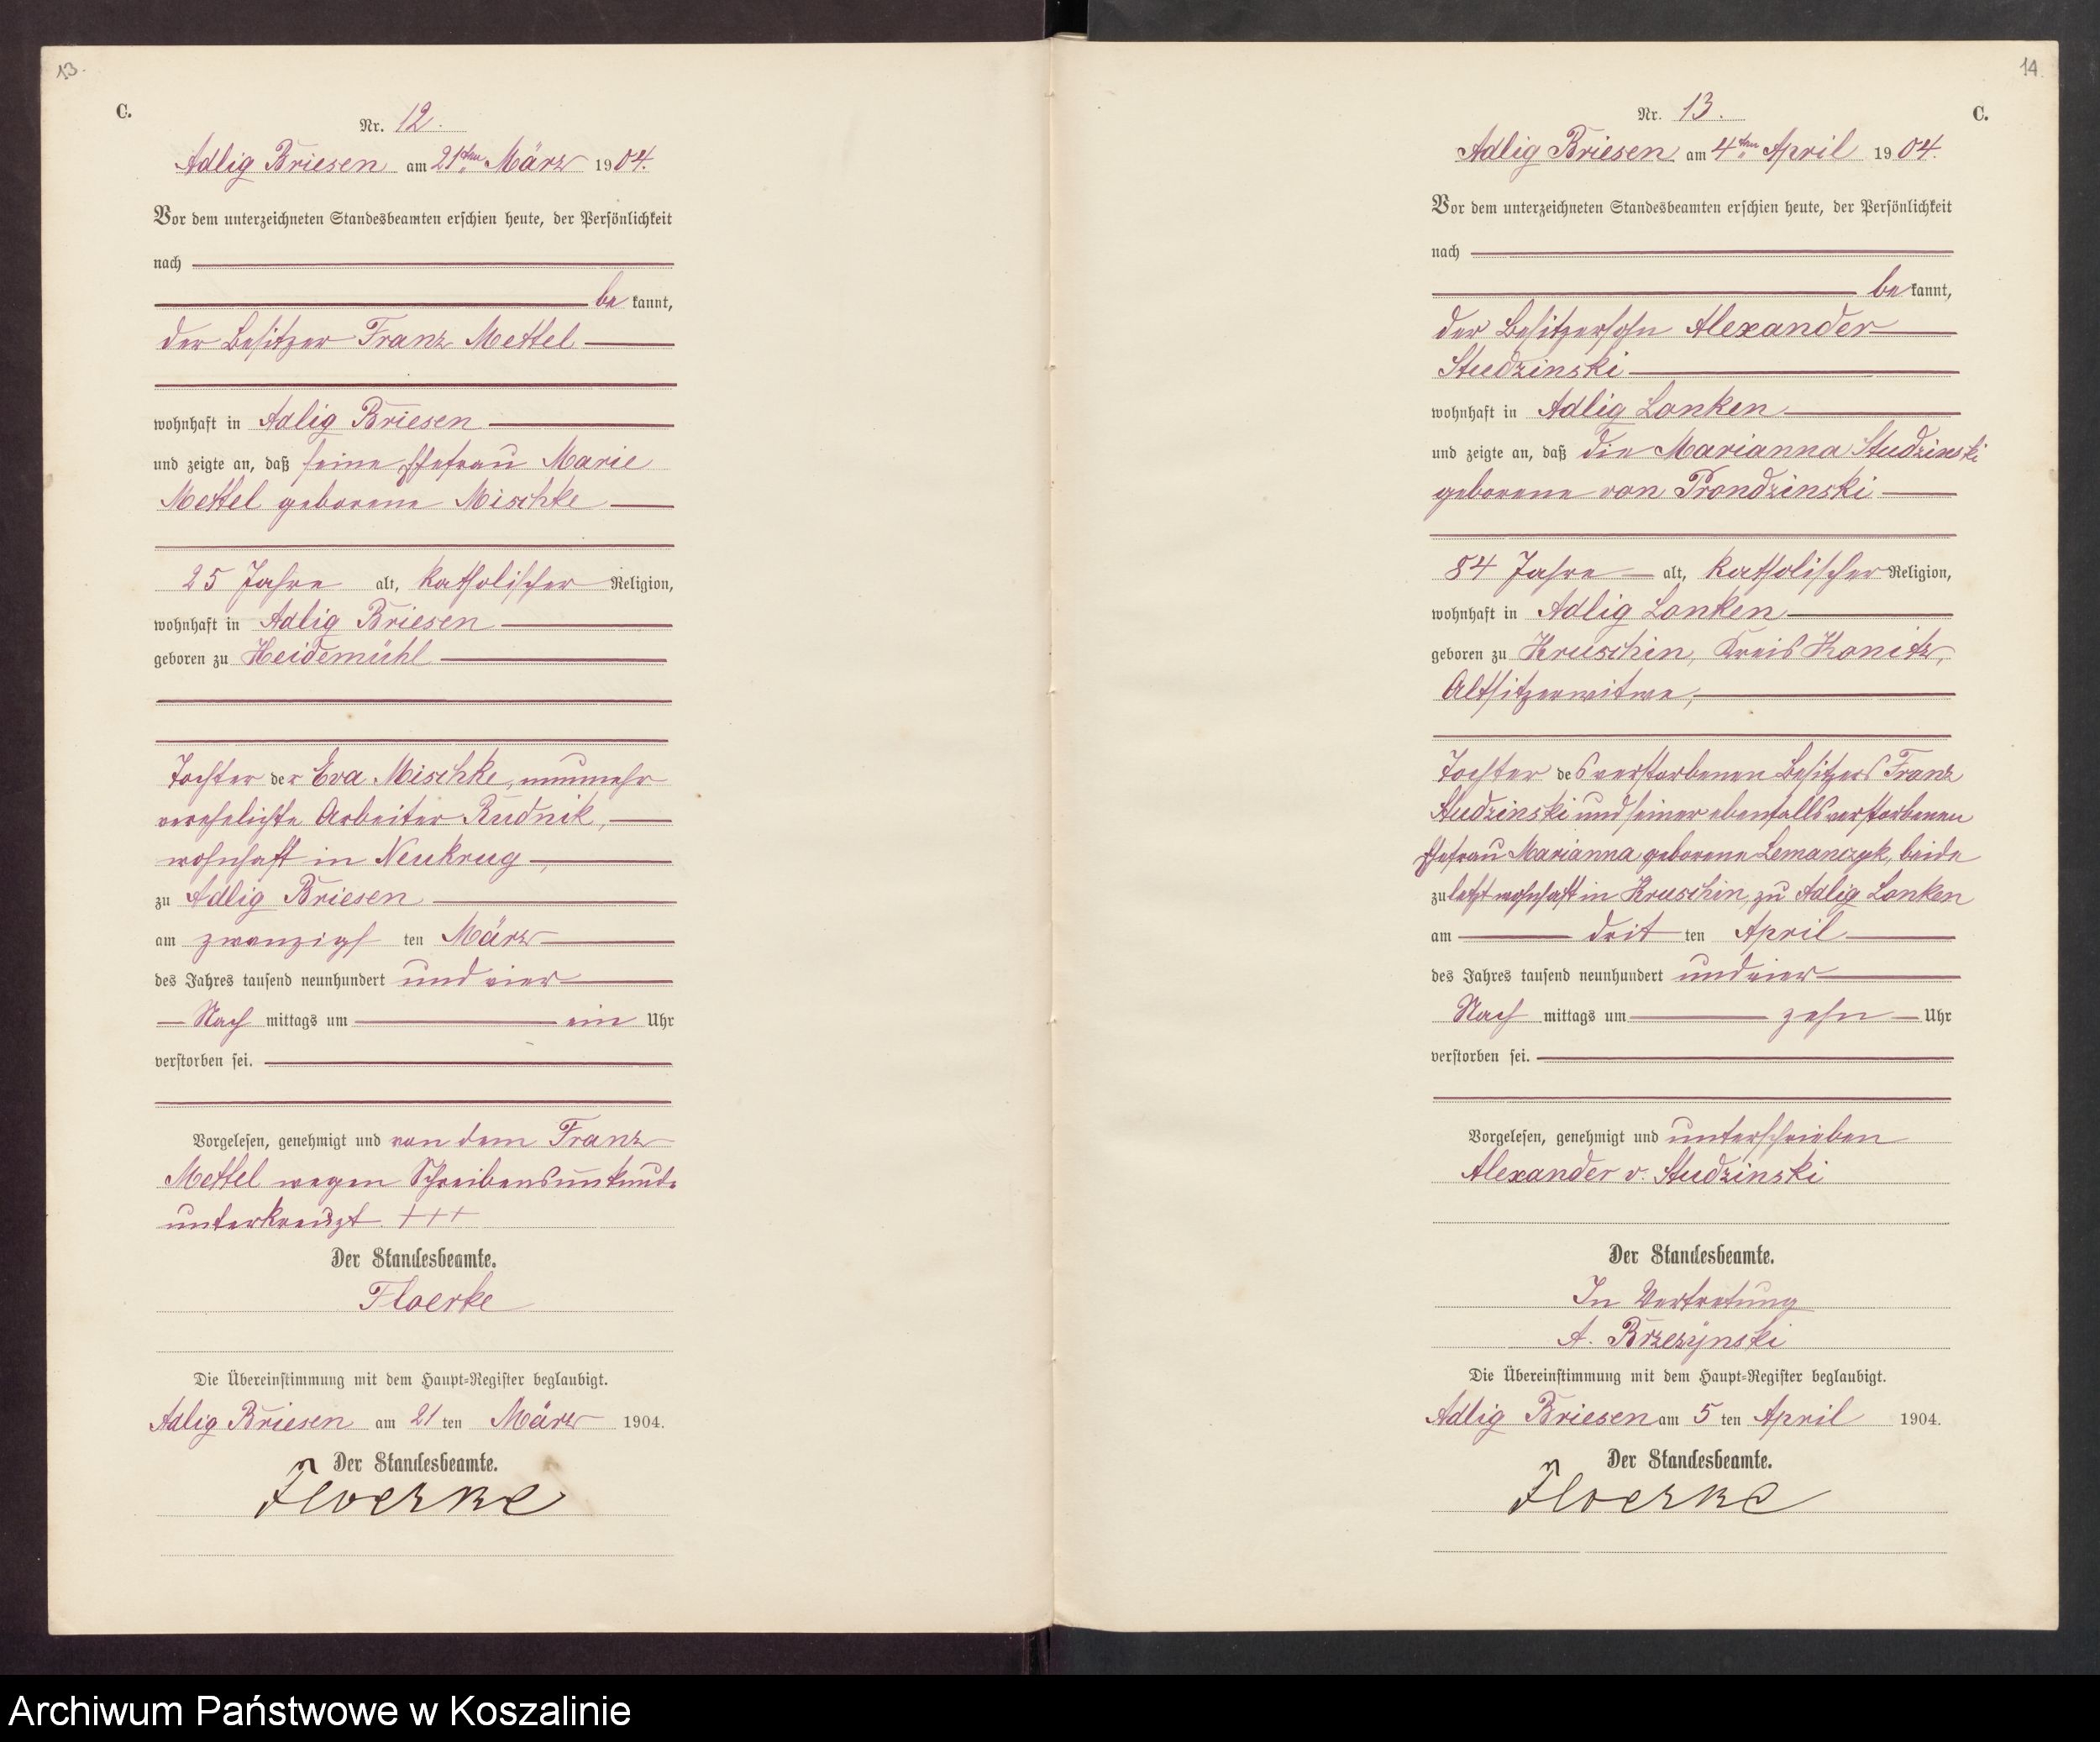 13.
C.
Nr. 12.
Adlig Briesen am 21ten März 1904.
Vor dem unterzeichneten Standesbeamten erschien heute, der Persönlichkeit
nach
be kannt,
der Besitzer Franz Mettel
wohnhaft in Adlig Briesen
und zeigte an, daß seine Ehefrau Marie
Mettel geborene Mischke
25 Jahre alt, katholischer Religion,
wohnhaft in Adlig Briesen
geboren zu Heidemühl
Tochter der Eva Mischke, nunmehr
verehelichte Arbeiter Rudnik,
wohnhaft in Neukrug,
zu Adlig Briesen
am zwanzigs ten März
des Jahres tausend neunhundert und vier
Nach mittags um ein Uhr
verstorben sei.
Vorgelesen, genehmigt und von dem Franz
Mettel wegen Schreibensunkunde
unterkreuzt +++
Der Standesbeamte.
Floerke
Die Übereinstimmung mit dem Haupt-Register beglaubigt.
Adlig Briesen am 21 ten März 1904.
Der Standesbeamte.
Floerke
14.
C.
Nr. 13.
Adlig Briesen am 4ten April 1904.
Vor dem unterzeichneten Standesbeamten erschien heute, der Persönlichkeit
nach
be kannt,
der Besitzersohn Alexander
Studzinski
wohnhaft in Adlig Lonken
und zeigte an, daß die Marianna Studzinski
geborene von Prondzinski
84 Jahre alt, katholischer Religion,
wohnhaft in Adlig Lonken
geboren zu Kruschin, Kreis Konitz,
Altsitzerwitwe,
Tochter des verstorbenen Besitzers Franz
Studzinski und seiner ebenfalls verstorbenen
Ehefrau Marianna geborene Lemanczyk, beide
zuletzt wohnhaft in Kruschin, zu Adlig Lonken
am drit ten April
des Jahres tausend neunhundert und vier
Nach mittags um zehn Uhr
verstorben sei.
Vorgelesen, genehmigt und unterschrieben
Alexander v. Studzinski
Der Standesbeamte.
In Vertretung
A. Brzezynski
Die Übereinstimmung mit dem Haupt-Register beglaubigt.
Adlig Briesen am 5 ten April 1904.
Der Standesbeamte.
Floerke
Archiwum Państwowe w Koszalinie